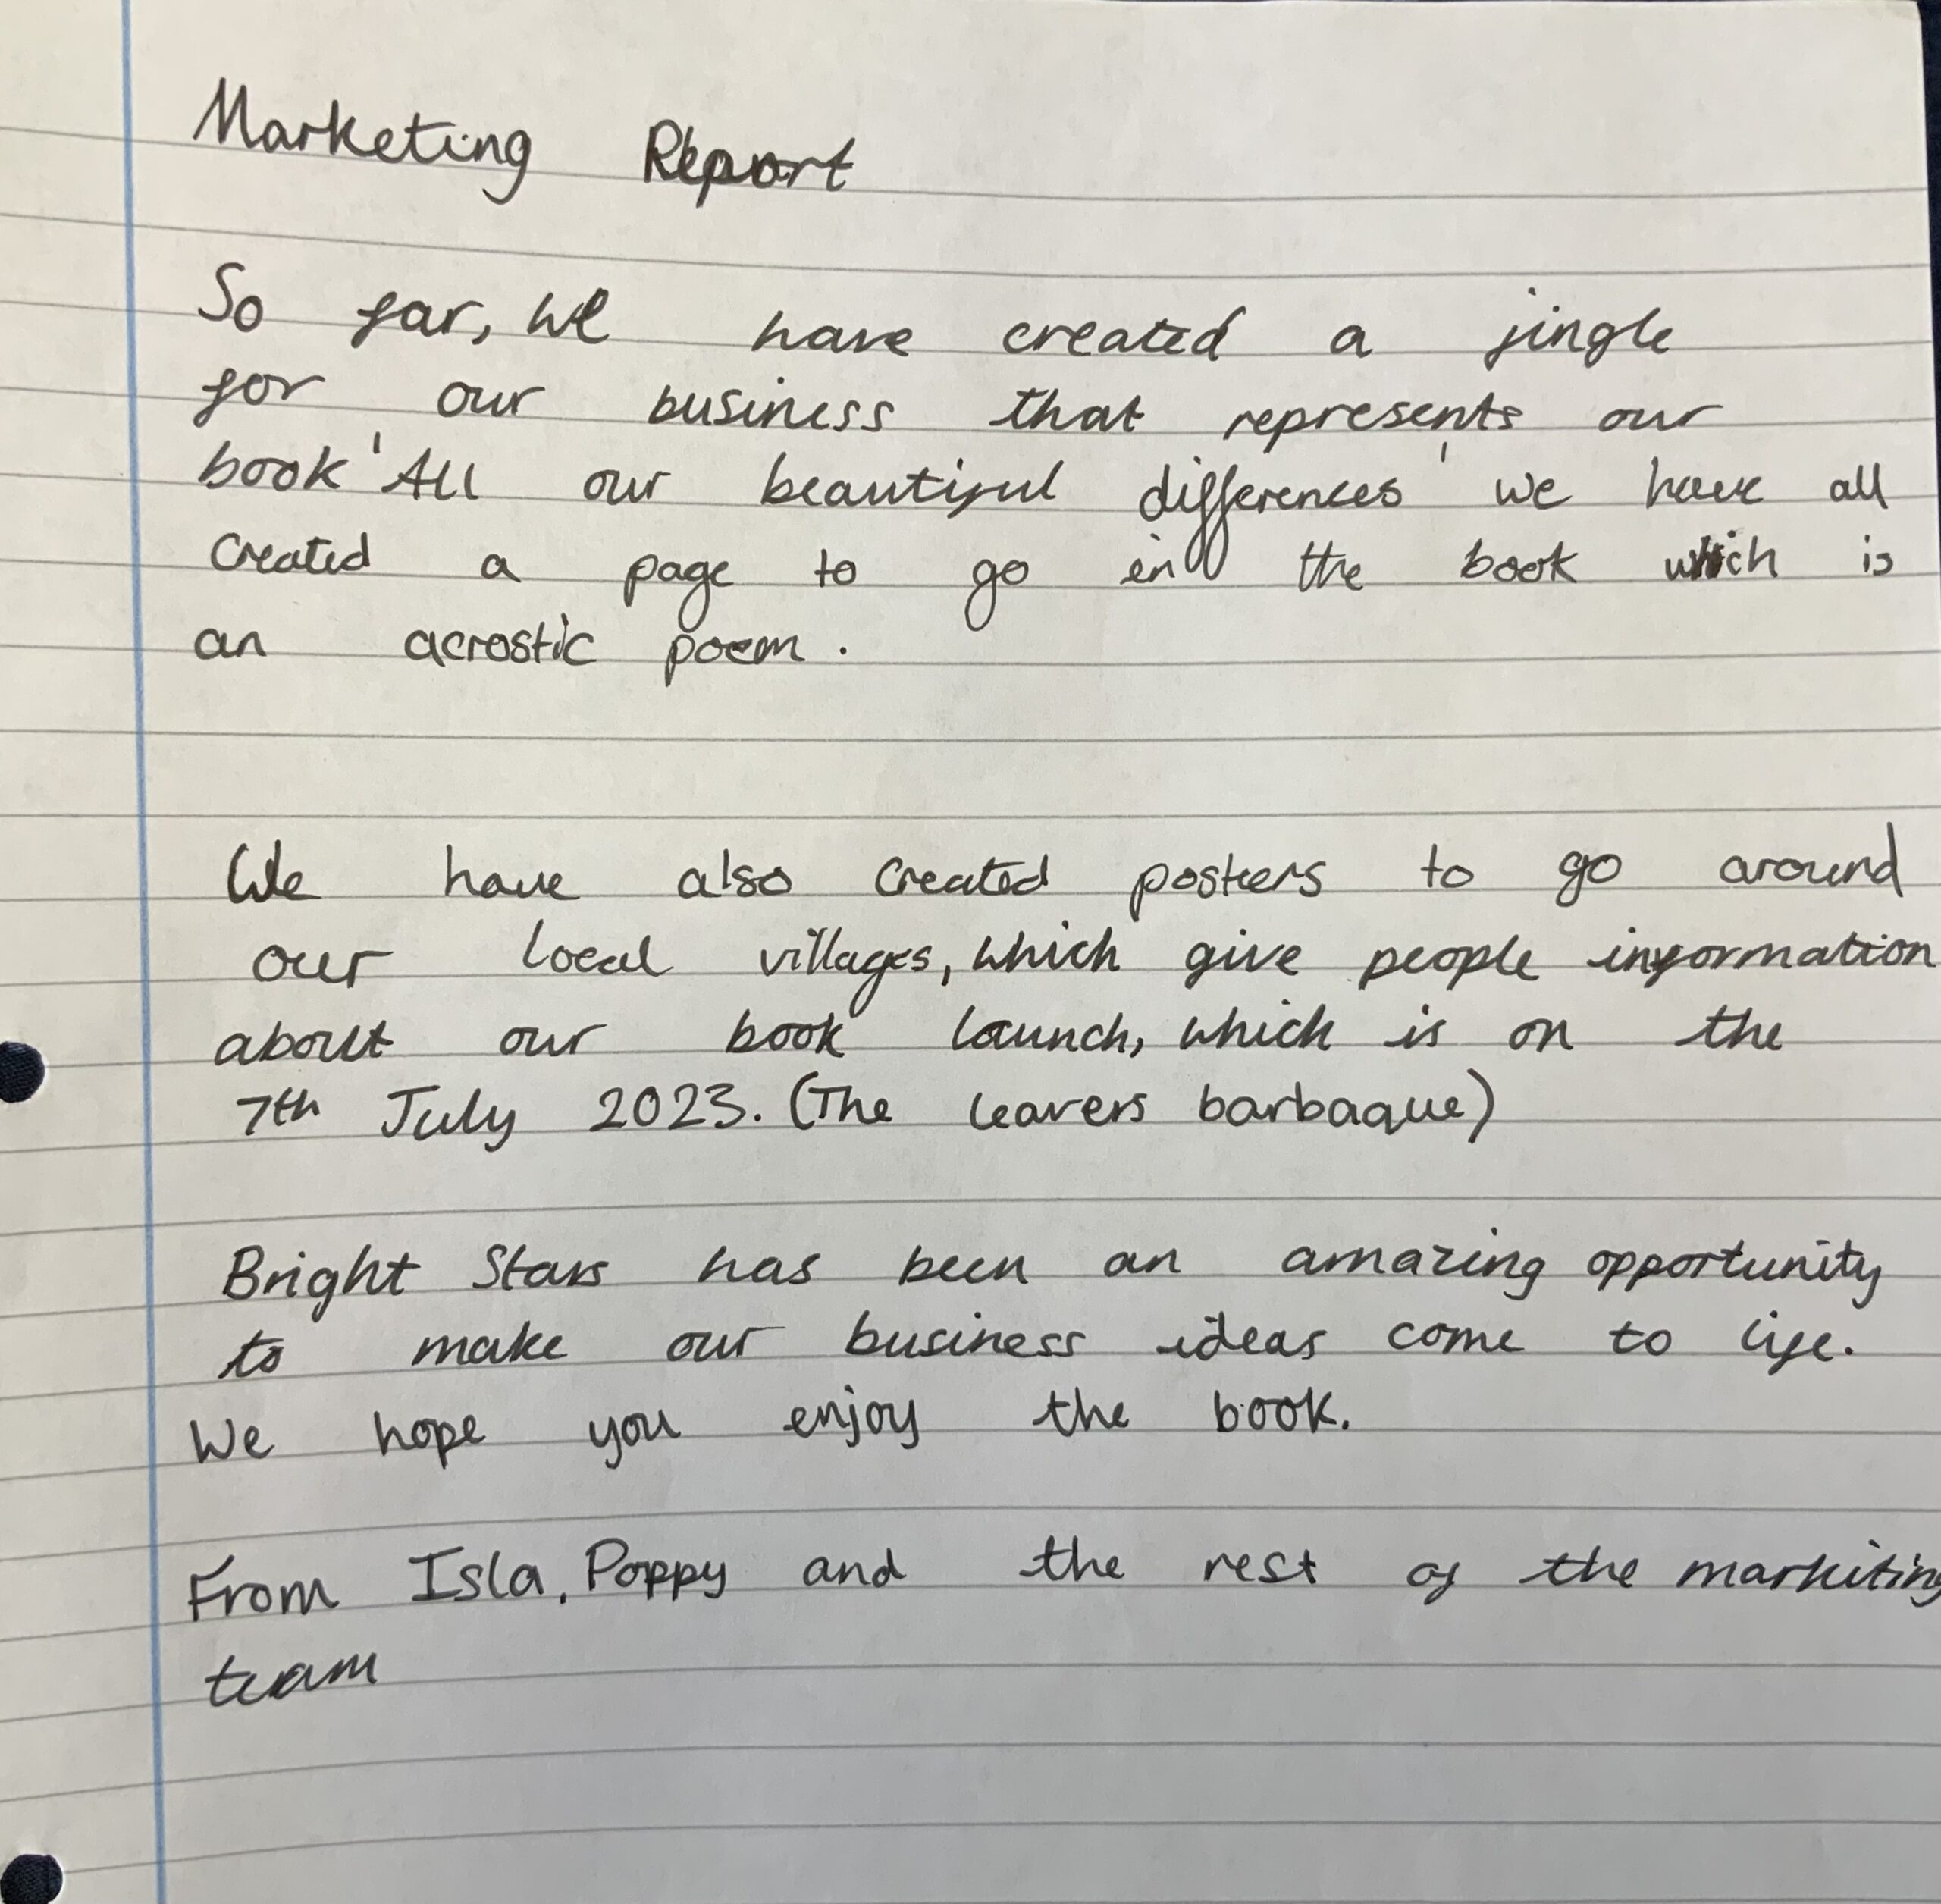 Marketing Report
So far, we have created a jingle
for our business that represents our
book 'All our beautiful differences' we have all
created a page to go in the book which is
an acrostic poem.
We have also created posters to go around
our local villages, which give people information
about our book launch, which is on the
7th July 2023. (The leavers barbaque)
Bright Stars has been an amazing opportunity
to make our business ideas come to life.
We hope you enjoy the book.
From Isla, Poppy and the rest of the markiting
team